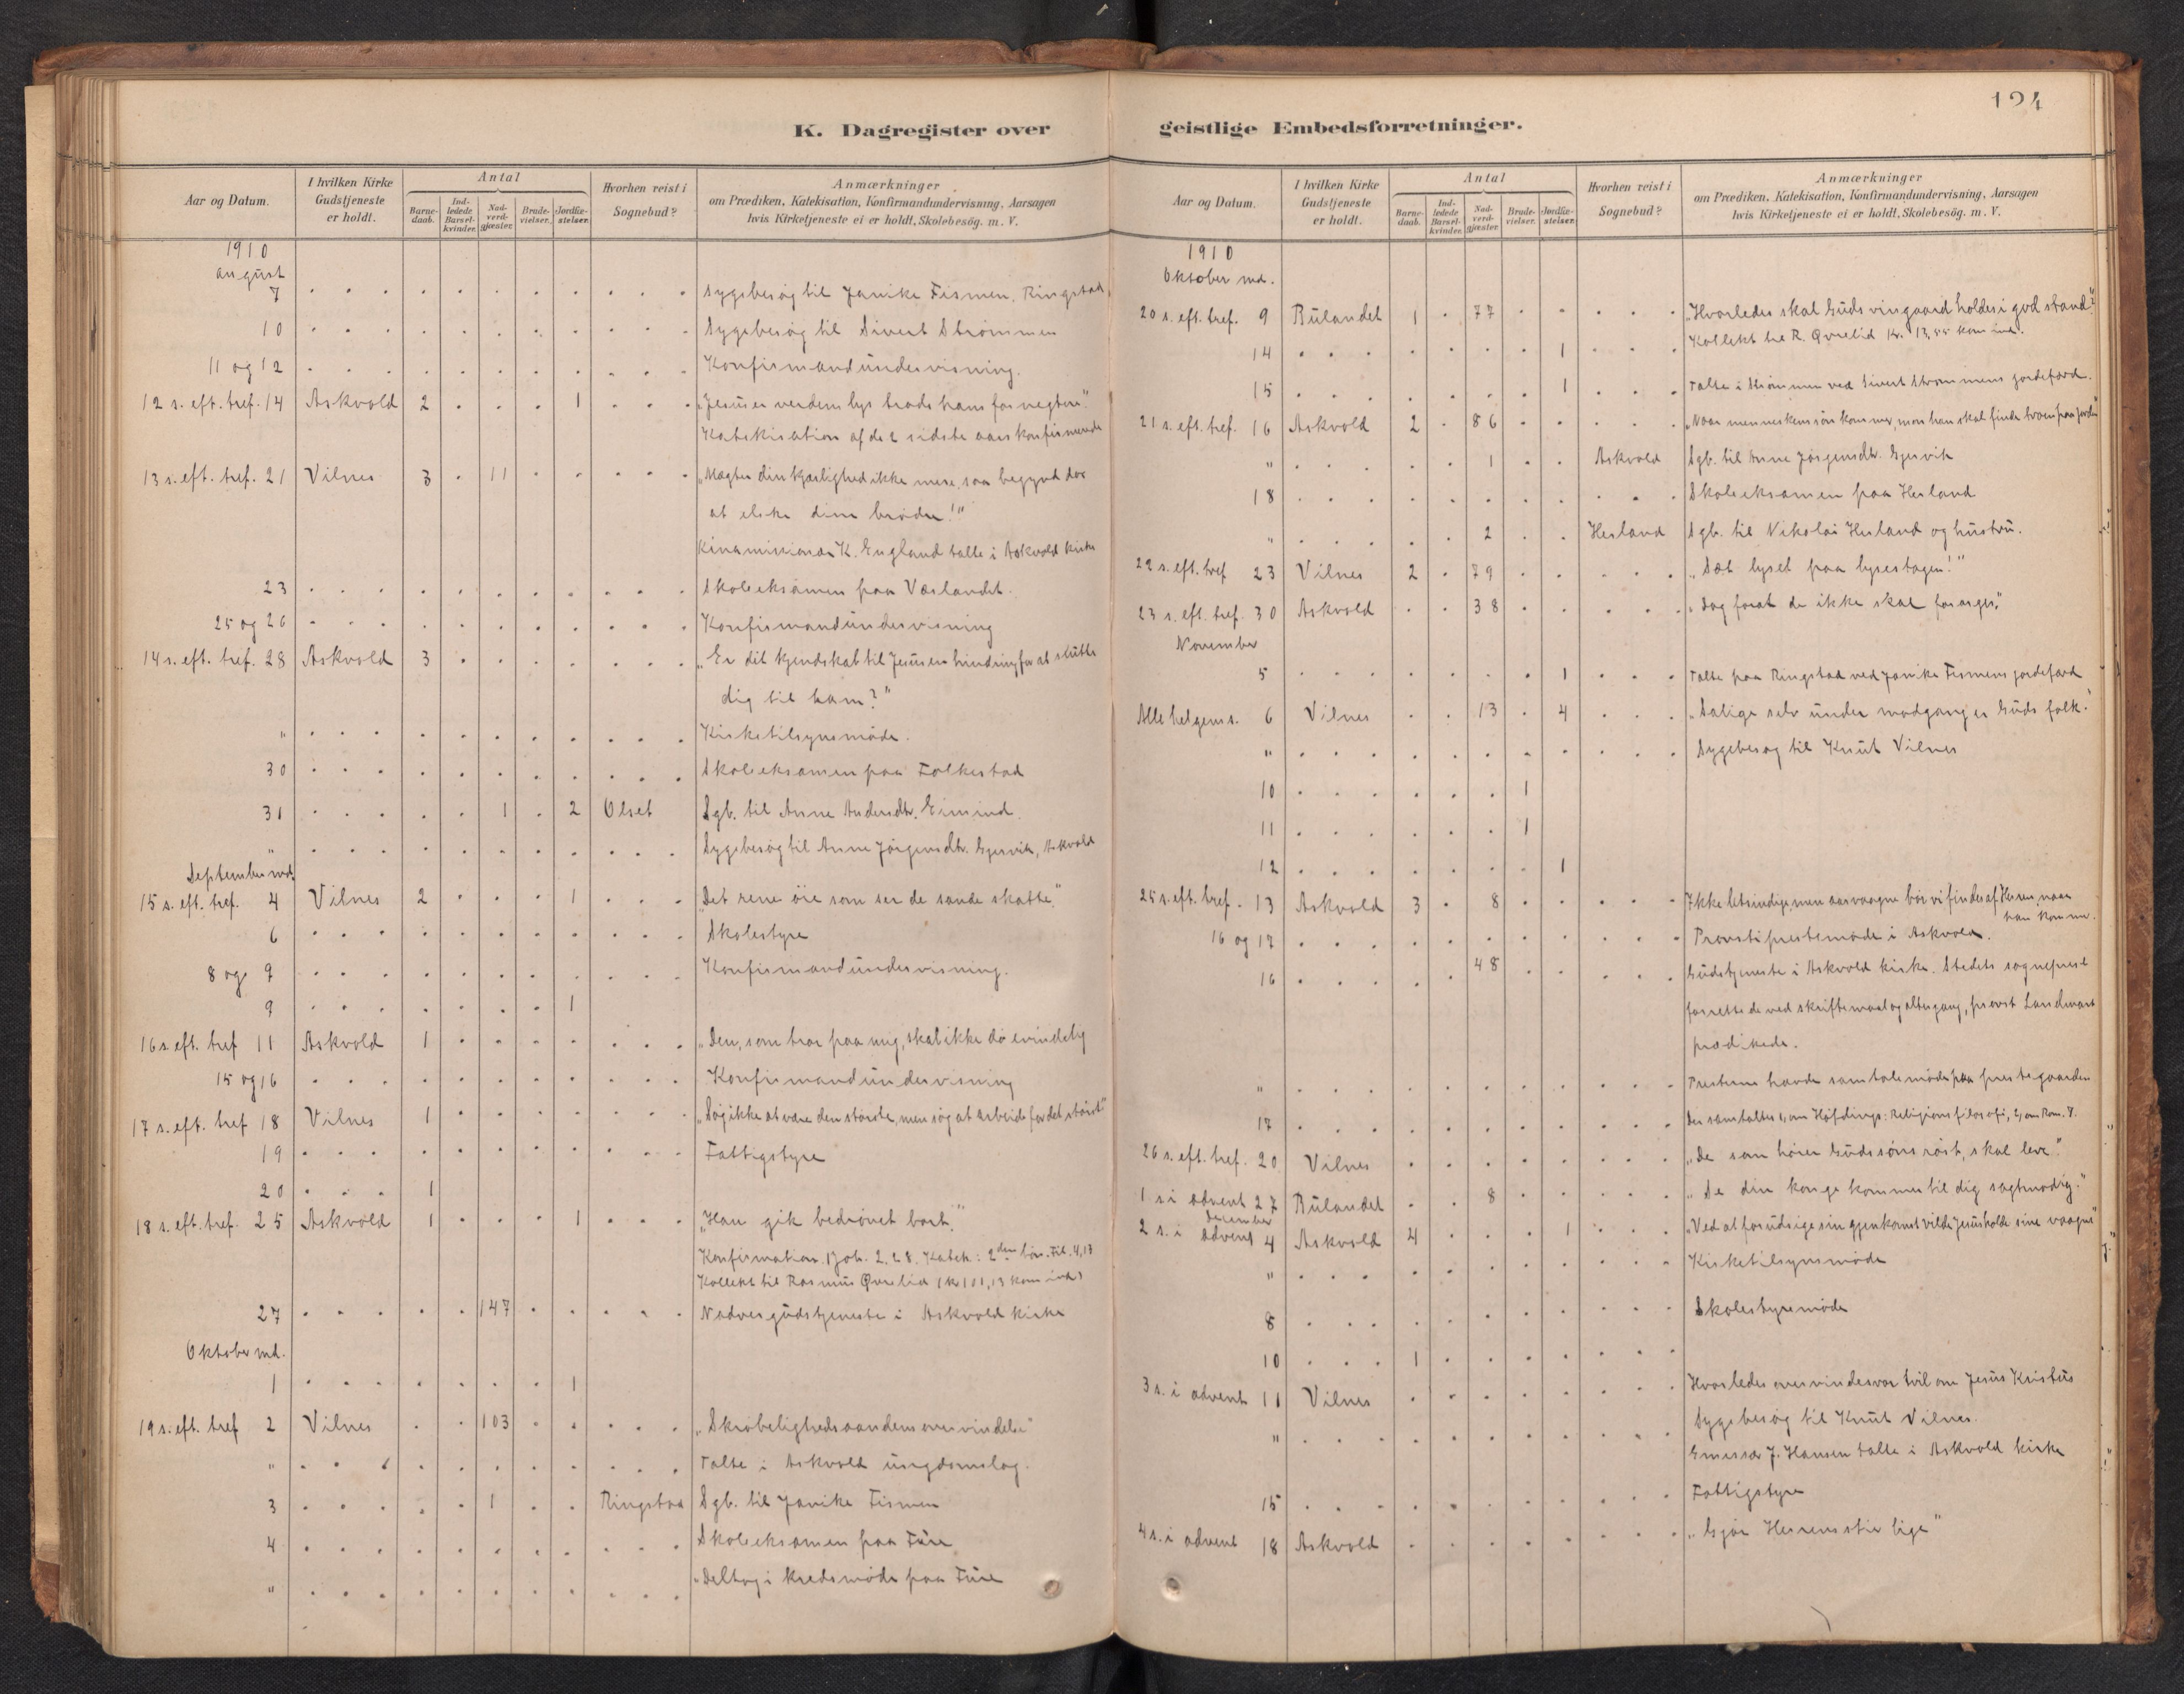 124
K. Dagregister over
geistlige Embedsforretninger.
Aar og Datum. I hvilken Kirke Gudstjeneste er holdt. Antal Barnedaab. Indledede Barselkvinder. Nadverdgjæster. Brudevielser. Jordfæstelser. Hvorhen reist i Sognebud? Anmærkninger om Prædiken, Katekisation, Konfirmandundervisning, Aarsagen hvis Kirketjeneste ei er holdt, Skolebesög. m. V.
1910
august
7 Sygebesøg til Janike Fismen, Ringstad
10 Sygebesøg til Sivert Strømmen
11 og 12 Konfirmandundervisning.
12 s. eft. tref. 14 Askvold 2 1 „Jesus er verdens lys trods hans fornegtere."
Katekisation af de 2 sidste aars konfirmerede
13 s. eft. tref. 21 Vilnes 3 11 „Magter din kjærlighed ikke mere, saa begynd dog
at elske dine brødre!"
Kinamissionær K. England talte i Askvold kirke
23 Skoleeksamen paa Værlandet.
25 og 26 Konfirmandundervisning
14 s. eft. tref. 28 Askvold 3 „Er dit kjendskab til Jesus en hindring for at slutte
dig til ham?"
" Kirketilsynsmøde.
30 Skoleeksamen paa Folkestad
31 1 2 Olset Sgb. til Anne Andersdtr. Eimind.
" Sygebesøg til Anne Jørgensdtr. Gjesvik, Askvold
September md.
15 s. eft. tref. 4 Vilnes 2 1 „Det rene øie som ser de sande skatte."
6 Skolestyre
8 og 9 Konfirmandundervisning.
9 1
16 s. eft. tref 11 Askvold 1 „Den, som tror paa mig, skal ikke dø evindelig
15 og 16 Konfirmandundervisning
17 s. eft. tref 18 Vilnes 1 „Søg ikke at være den største, men søg at arbeide for det største"
19 Fattigstyre
20 1
18 s. eft. tref. 25 Askvold 1 1 „Han gik bedrøvet bort."
Konfirmation. 1 Joh. 2, 28. Katek: 2den bøn. Fil. 4,13
Kollekt til Rasmus Øvrelid (kr 101,13 kom ind)
27 147 Nadvergudstjeneste i Askvold kirke
Oktober md.
1 1
19 s. eft. tref 2 Vilnes 103 „Skrøbelighedsaandens overvindelse"
" Talte i Askvold ungdomslag.
3 1 Ringstad Sgb. til Janike Fismen
4 Skoleeksamen paa Fure
" Deltog i kredsmøde paa Fure
Aar og Datum. I hvilken Kirke Gudstjeneste er holdt. Antal Barnedaab. Indledede Barselkvinder. Nadverdgjæster. Brudevielser. Jordfæstelser. Hvorhen reist i Sognebud? Anmærkninger om Prædiken, Katekisation, Konfirmandundervisning, Aarsagen hvis Kirketjeneste ei er holdt, Skolebesög. m. V.
1910
Oktober md.
20 s. eft. tref. 9 Bulandet 1 77 „Hvorledes skal Guds vingaard holdes i god stand?"
Kollekt til R. Øvrelid kr. 13,55 kom ind.
14 1
15 1 Talte i Strømmen ved Sivert Strømmens jordefærd.
21 s. eft. tref. 16 Askvold 2 86 „Naar menneskens søn kommer, mon han skal finde troen paa jorden"
" 1 Askvold Sgb. til Anne Jørgensdtr. Gjesvik
18 Skoleeksamen paa Herland
" 2 Herland Sgb. til Nikolai Herland og hustru.
22 s. eft. tref 23 Vilnes 2 79 „Sæt lyset paa lysestagen!"
23 s. eft. tref. 30 Askvold 38 „Dog forat de ikke skal forarges."
November
5 1 Talte paa Ringstad ved Janike Fismens jordefærd
Alle helgens s. 6 Vilnes 13 4 „Salige selv under modgang er Guds folk."
" Sygebesøg til Knut Vilnes
10 1
11 1
12 1
25 s. eft. tref. 13 Askvold 3 8 Ikke letsindige, men aarvaagne bør vi findes af Herren, naar
han kommer.
16 og 17 Provstiprestemøde i Askvold.
16 48 Gudstjeneste i Askvold kirke. Stedets sogneprest
forrettede ved skriftemaal og altergang, provst Landmark
prædikede.
" Presterne havde samtalemøde paa prestegaarden
17 Der samtaltes 1, om Høfdings: Religionsfilosofi, 2, om Rom. 8.
26 s. eft. tref. 20 Vilnes „De som hører Guds søns røst, skal leve."
1 s i advent 27 Bulandet 8 „Se din konge kommer til dig sagtmodig."
december
2 s. i advent 4 Askvold 4 1 „Ved at forudsige sin gjenkomst vilde Jesus holde sine vaagne"
" Kirketilsynsmøde
8 Skolestyremøde
10 1
3 s. i advent 11 Vilnes Hvorledes overvindes vor tvil om Jesus Kristus
" Sygebesøg til Knut Vilnes.
Emissær J. Hansen talte i Askvold kirke
15 Fattigstyre
4 s. i advent 18 Askvold „Gjør Herrens stier lige"